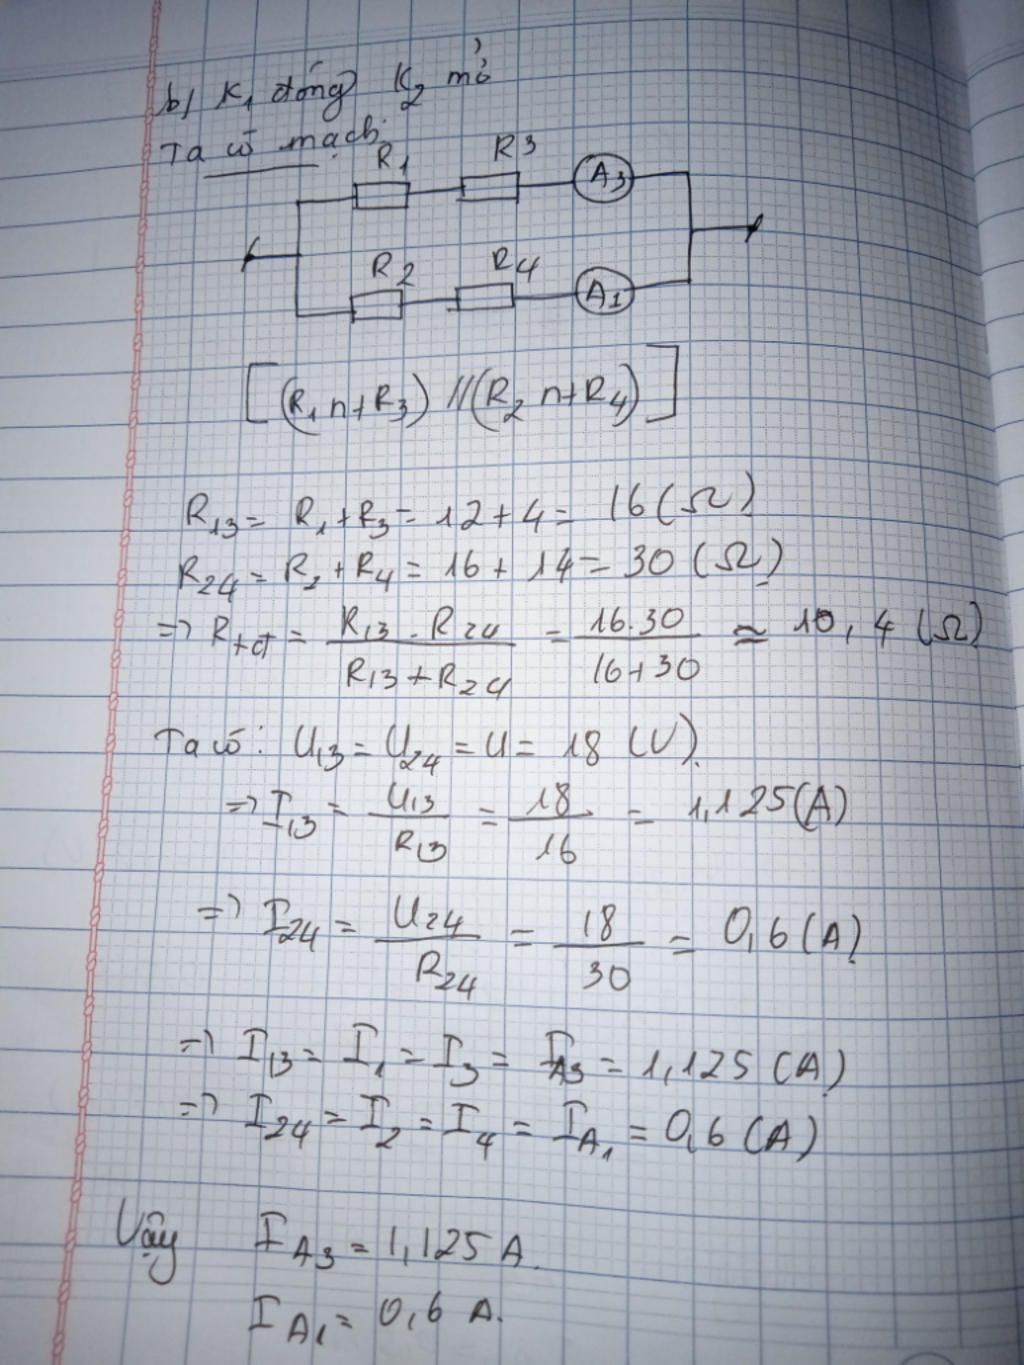 b) K₁ đóng K₂ mở
Ta có mạch:
R1 R3 A3
R2 R4 A1
[(R₁ nt R₃) // (R₂ nt R₄)]
R₁₃ = R₁ + R₃ = 12 + 4 = 16 (Ω)
R₂₄ = R₂ + R₄ = 16 + 14 = 30 (Ω)
=> Rtđ = R₁₃ . R₂₄ / R₁₃ + R₂₄ = 16.30 / 16+30 ≈ 10,4 (Ω)
Ta có: U₁₃ = U₂₄ = U = 18 (V).
=> I₁₃ = U₁₃ / R₁₃ = 18 / 16 = 1,125 (A)
=> I₂₄ = U₂₄ / R₂₄ = 18 / 30 = 0,6 (A)
=> I₁₃ = I₁ = I₃ = I_A3 = 1,125 (A)
=> I₂₄ = I₂ = I₄ = I_A1 = 0,6 (A)
Vậy I_A3 = 1,125 A.
I_A1 = 0,6 A.